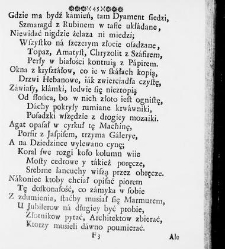 (45)
Gdzie ma bydź kamień, tam Dyament siedzi,
Szmaragd z Rubinem w tasle układane,
Niewidać nigdzie żelaza ni miedzi;
Wszystko na szczerym złocie osadzane,
Topaz, Amatyst, Chryzolit z Szafirem,
Perły w białości kontrują z Papirem.
Okna z kryształow, co ie w skałach kopią,
Drzwi Hebanowe, iak zwierciadła czyste,
Zawiasy, klamki, ludwie się nieztopią
Od słońca, bo w nich złoto iest ogniste,
Dichy pokryły rumiane krwawniki,
Posadzki wszędzie z drogiey mozaiki;
Agat opasał w cyrkuł tę Machinę,
Porfir z Jaspisem, trzyma Galerye,
A na Dziedzińce wylewano cynę;
Koral swe rozgi koło kolumn wiie
Mosty cedrowe y takież poręcze,
Srebrne łancuchy wiszą przez obręcze.
Nakoniec ktoby chciał opisać piorem
Tę doskonałość, co zamyka w sobie
Z zdumienia, stałby musiał się Marmurem,
U Jubilerow na długiey być probie,
Złotnikow pytać, Architektow zbierać,
Ktorzy musieli dawno poumierać.
F3
Ale